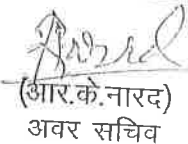 (आर.के.नारद)
अवर सचिव